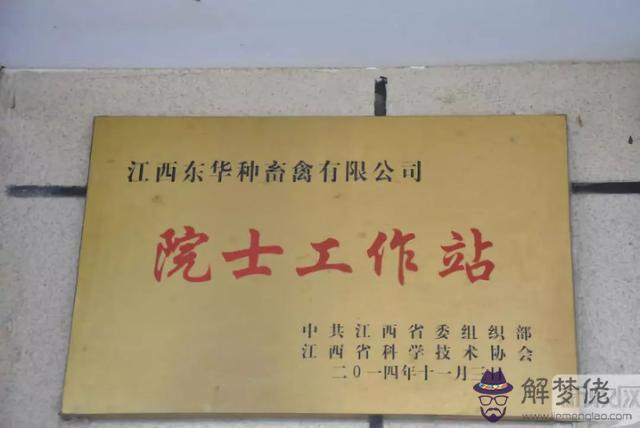 江西东华种畜禽有限公司
院士工作站
中共江西省委组织部
江西省科学技术协会
二〇一四年十一月三日
解梦佬
www.jiemenglao.com